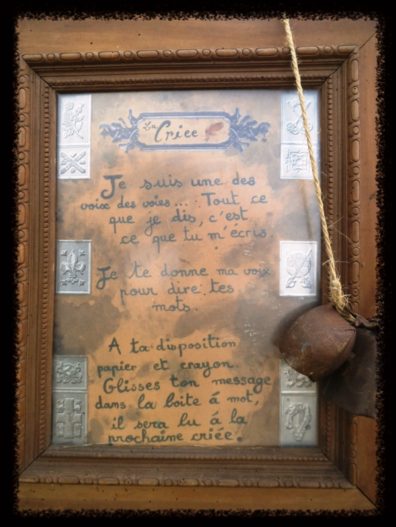 La Criée
Je suis une des
voix des voies... Tout ce
que je dis, c'est
ce que tu m'écris.
Je te donne ma voix
pour dire tes
mots.
A ta disposition
papier et crayon.
Glisses ton message
dans la boîte á mot,
il sera lu á la
prochaine criée.